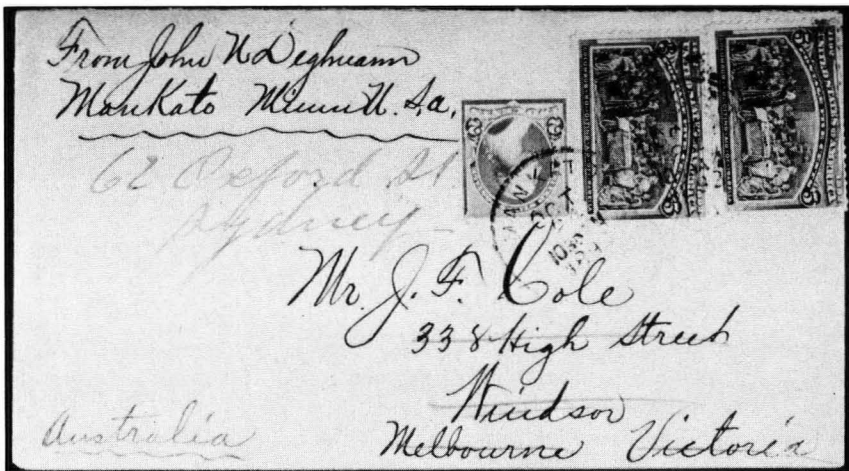 From John N Deghuann
Mankato Minn U.S.a.
62 Oxford St.
Sydney
MANK
OCT
10
Mr. J. F. Cole
338 High Street
Windsor
Melbourne Victoria
Australia